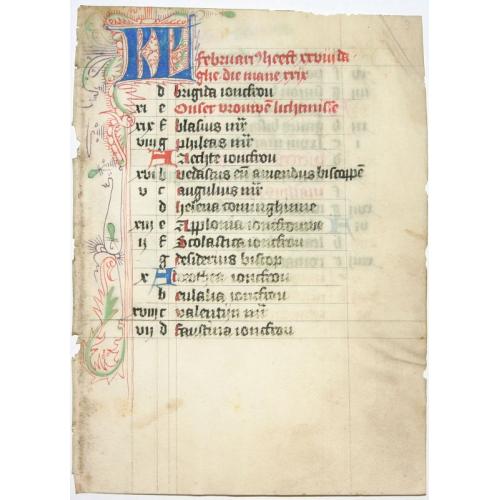 KL februari(us) heeft xxviij da
ghe die mane xxix
d brigida ionckfrou
xi e Onser vrouwen lichtmisse
xix f blasius mr
viij g phileas mr
A Aechte ionckfrou
xvi b vedastus en amandus biscoppen
v c augulius mr
d helena coninghinne
xiii e Applonia ionckfrouwe
ij f Scolastica ionckfrou
g desiderius biscop
x A dorothea ionckfrou
b eulalia ionckfrou
xviij c valentijn mr
vij d faustina ionckfrou